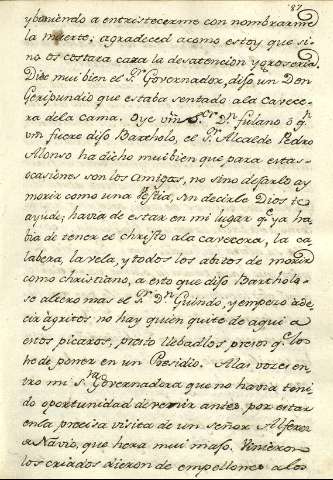 87
y poniendo a entristecerme con nombrarme
la muerte; agradeced acomo estoy que si-
no os costara cara la desatencion y groseria.
Dize mui bien el Sr. Governador, dijo un Don
Geripundio que estaba sentado ala cavece-
ra dela cama. Oye vm Sor. Dn. fulano ò qn.
vm fuere dijo Bartholo, el Sr. Alcalde Pedro
Alonso ha dicho mui bien que para estas o-
casiones son los amigos, no sino dejarlo a vs
morir como una Bestia, sin decirle Dios te
ayude; havia de estar en mi lugar qe. ya ha-
bia de tener el christo ala cavecera, la ca-
labera, la vela, y todos los abitos de morir
como christiano, a esto que dijo Bartholo
se altero mas el Sr. Dn. Guindo, y empezo àde-
cir àgritos no hay quien quite de aqui a
estos picaros, presto llebadlos presos qe. los
he de poner en un Presidio. Alas voces en-
tro mi Sra. Governadora que no havia teni-
do oportunidad de venir antes por estar
en la precisa visita de un señor Alferez
de Navio, que hera mui majo. Vinieron
los criados dieron de empellones a los